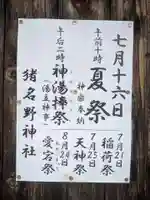 七月十六日
午前十時
夏祭
神楽奉納
午后二時
神湯捧祭
(湯立神事)
7月21日
稲荷祭
7月25日
天神祭
8月24日
愛宕祭
猪名野神社